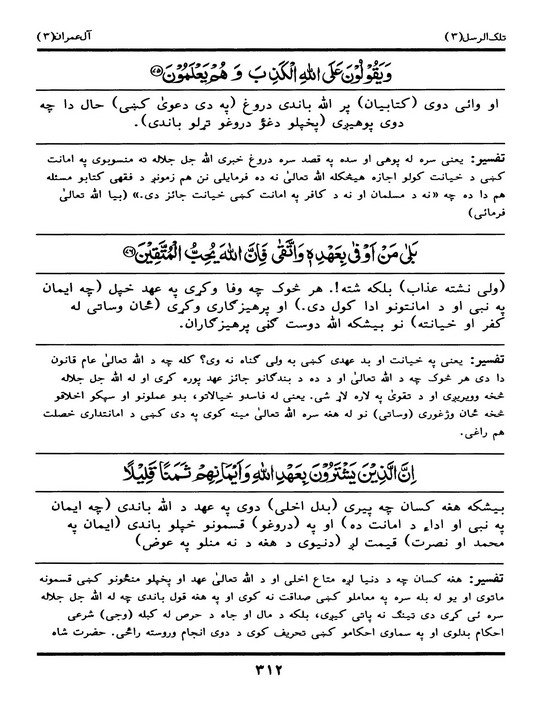 تلک الرسل (۳) آل عمران (۳)
وَيَقُوْلُوْنَ عَلَى اللّٰهِ الْكَذِبَ وَ هُمْ يَعْلَمُوْنَ ﴿۷۵﴾
او وائي دوی (کتابیان) پر الله باندی دروغ (په دی دعویٰ کښی) حال دا چه
دوی پوهیږی (پخپلو دغؤ دروغو تړلو باندی).
تفسیر: یعنی سره له پوهی او سده په قصد سره دروغ خبری الله جل جلاله ته منسوبوی په امانت
کښی د خیانت کولو اجازه هیڅکله الله تعالیٰ نه ده فرمایلی نن هم زمونږ د فقهی کتابو مسئله
هم دا ده چه «نه د مسلمان او نه د کافر په امانت کښی خیانت جائز دی.» (بیا الله تعالیٰ
فرمائی)
بَلٰى مَنْ اَوْفٰى بِعَهْدِهٖ وَاتَّقٰى فَاِنَّ اللّٰهَ يُحِبُّ الْمُتَّقِيْنَ ﴿۷۶﴾
(ولی نشته عذاب) بلکه شته!. هر څوک چه وفا وکړی په عهد خپل (چه ایمان
په نبی او د امانتونو ادا کول دی.) او پرهیزګاری وکړی (ځان وساتی له
کفر او خیانته) نو بیشکه الله دوست ګڼی پرهیزګاران.
تفسیر: یعنی په خیانت او بد عهدی کښی به ولی ګناه نه وی؟ کله چه د الله تعالیٰ عام قانون
دا دی هر څوک چه د الله تعالیٰ او د ده د بندګانو جائز عهد پوره کړی او له الله جل جلاله
څخه وویریږی او د تقویٰ په لاره لاړ شی. یعنی له فاسدو خیالاتو، بدو عملونو او سپکو اخلاقو
څخه ځان وژغوری (وساتی) نو له هغه سره الله تعالیٰ مینه کوی په دی کښی د امانتداری خصلت
هم راغی.
اِنَّ الَّذِيْنَ يَشْتَرُوْنَ بِعَهْدِ اللّٰهِ وَاَيْمَانِهِمْ ثَمَنًا قَلِيْلًا
بیشکه هغه کسان چه پیری (بدل اخلی) دوی په عهد د الله باندی (چه ایمان
په نبی او اداء د امانت ده) او په (دروغو) قسمونو خپلو باندی (ایمان په
محمد او نصرت) قیمت لږ (دنیوی د هغه د نه منلو په عوض)
تفسیر: هغه کسان چه د دنیا لږه متاع اخلی او د الله تعالیٰ عهد او پخپلو منځونو کښی قسمونه
ماتوی او یو له بله سره په معاملو کښی صداقت نه کوی او په هغه قول باندی چه له الله جل جلاله
سره ئی کړی دی ټینګ نه پاتی کیږی، بلکه د مال او جاه د حرص له کبله (وجی) شرعی
احکام بدلوی او په سماوی احکامو کښی تحریف کوی د دوی انجام وروسته راځی. حضرت شاه
۳۱۲